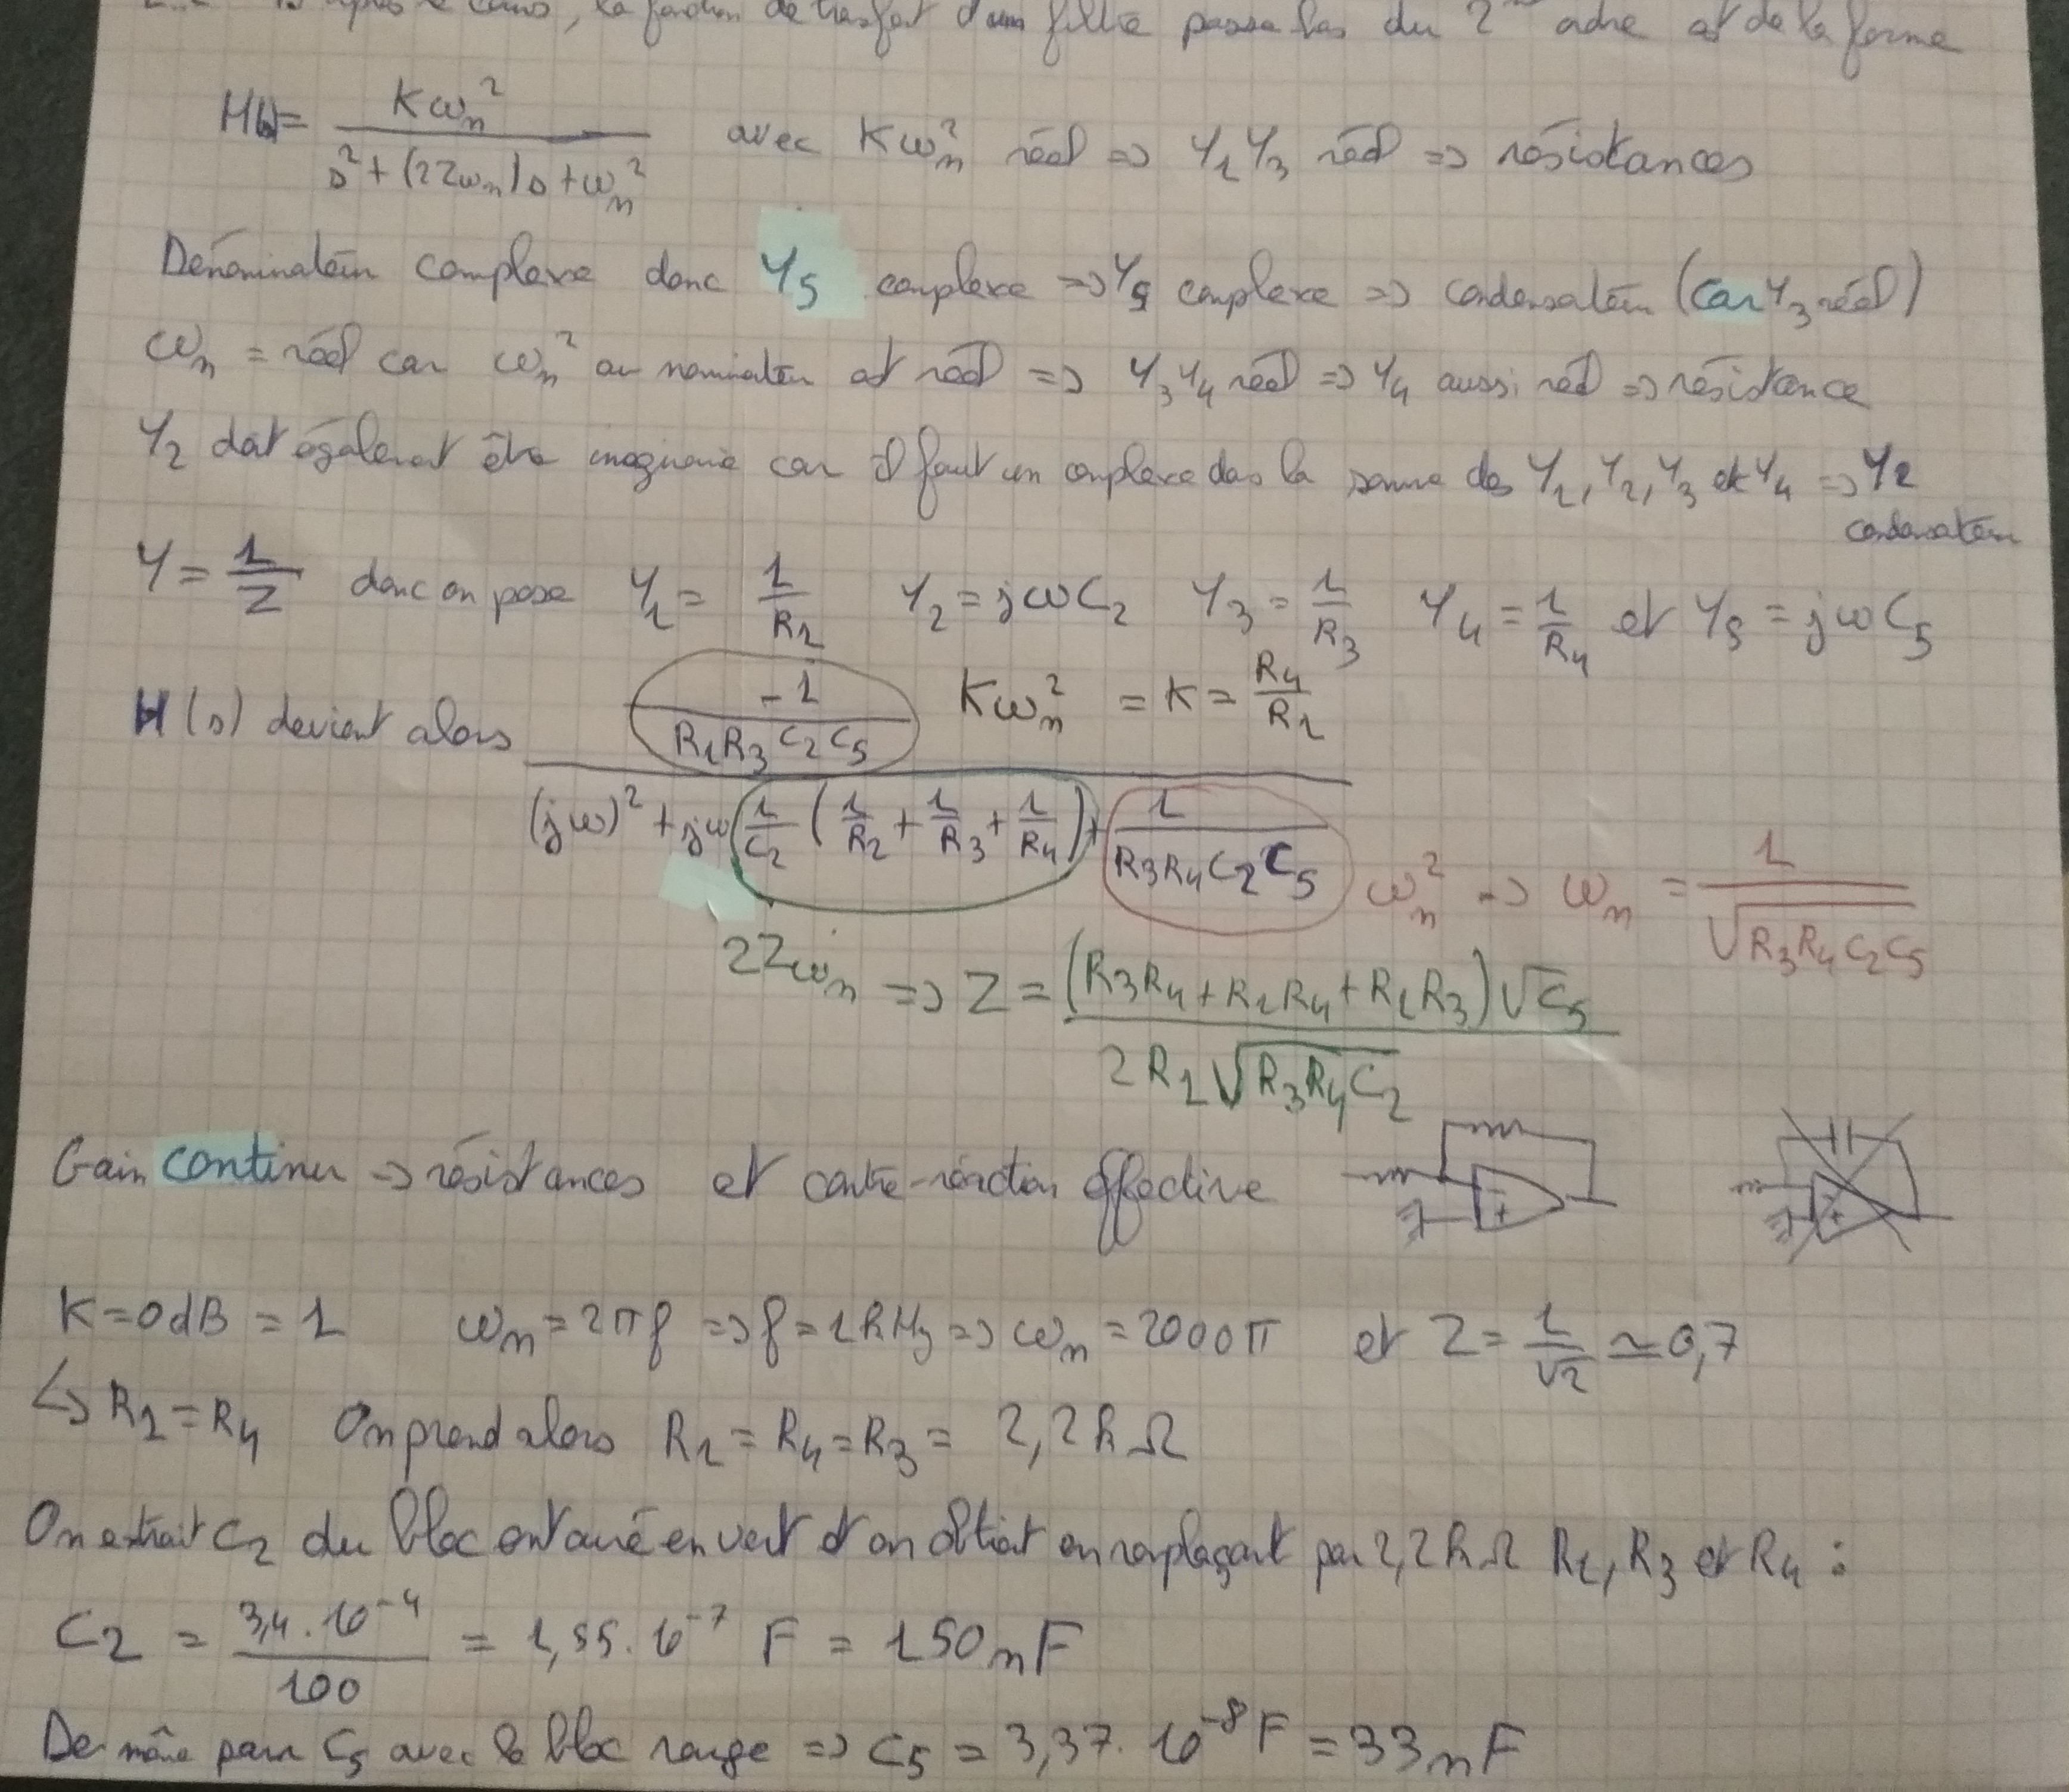 la fonction de transfert d'un filtre passe bas du 2 ordre est de la forme
H(s) = Kωn² / (s² + (2Zωn)s + ωn²) avec Kωn² réel => Y1Y3 réel => résistances
Dénominateur complexe donc Y5 complexe => Y5 complexe => condensateur (car Y3 réel)
ωn = réel car ωn² au numérateur est réel => Y3Y4 réel => Y4 aussi réel => résistance
Y2 doit également être imaginaire car il faut un complexe dans la somme des Y1, Y2, Y3 et Y4 => Y2
condensateur
Y = 1/Z donc on pose Y1 = 1/R1 Y2 = jωC2 Y3 = 1/R3 Y4 = 1/R4 et Y5 = jωC5
-1 / (R1R3C2C5) Kωn² = K = R4/R1
H(s) devient alors
(jω)² + jω(1/C2 (1/R1 + 1/R3 + 1/R4)) + 1/(R3R4C2C5) ωn² => ωn = 1/√(R3R4C2C5)
2Zωn => Z = (R3R4 + R1R4 + R1R3)√C5 / (2R1√(R3R4C2))
Gain continu => résistances et contre-réaction effective
- +
- +
K = 0dB = 1 ωn = 2πf => f = 1kHz => ωn = 2000π et Z = 1/√2 ≃ 0,7
↳ R1 = R4 On prend alors R1 = R4 = R3 = 2,2kΩ
On extrait C2 du bloc entouré en vert et on obtient en remplaçant par 2,2kΩ R1, R3 et R4 :
C2 = 3,4.10⁻⁴ / 100 = 1,55.10⁻⁷ F = 150nF
De même pour C5 avec le bloc rouge => C5 = 3,37.10⁻⁸ F = 33nF